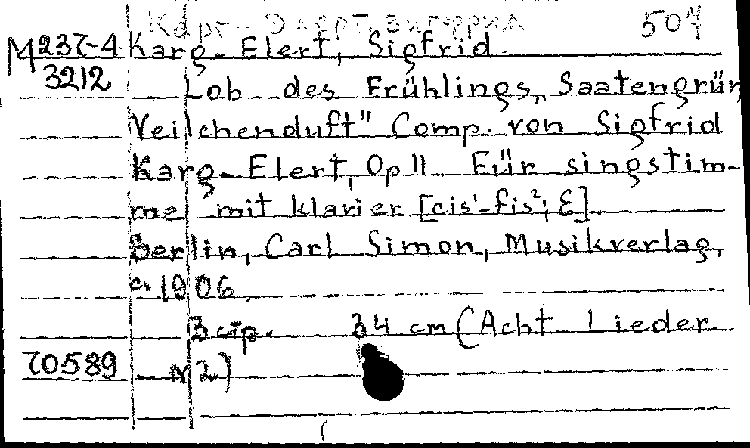 Карг-Элерт, Зигфрид 507
М237-4 Karg-Elert, Sigfrid.
3212 Lob des Frühlings, „Saatengrün
Veilchenduft" Comp. von Sigfrid
Karg-Elert, Op 11 Für singstim-
me mit klavier [cis¹-fis²; E].
Berlin, Carl Simon, Musikverlag,
c. 1906.
3 стр. 34 cm (Acht Lieder
70589 N 2)